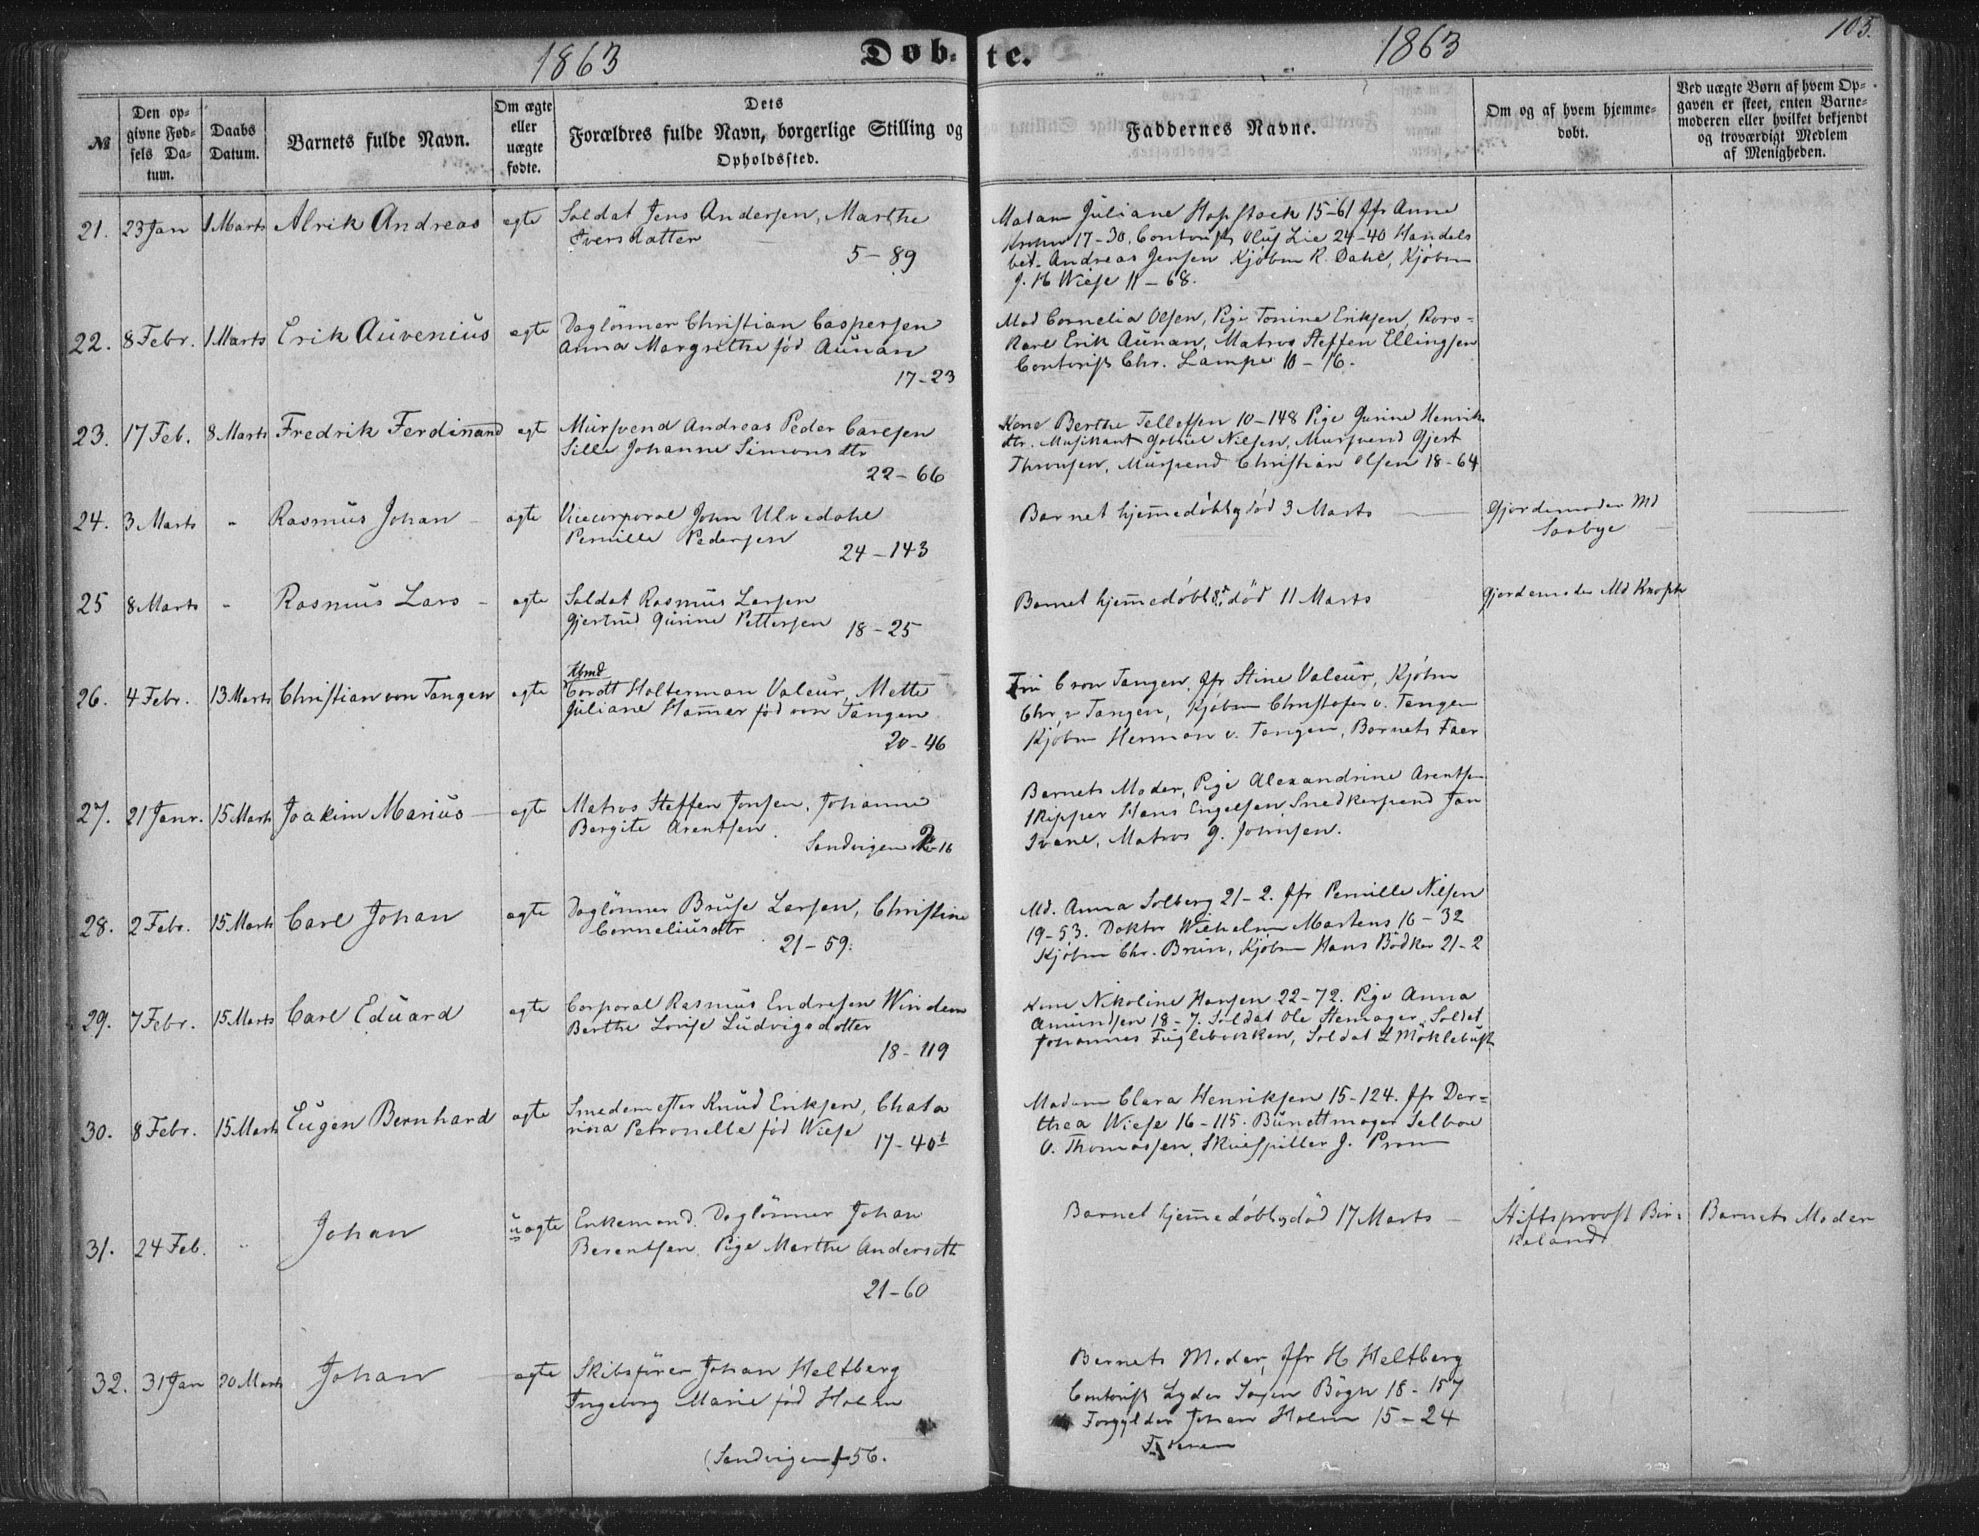 1863 Døb-te. 1863 103.
№
Den op-
givne Fød-
sels Da-
tum.
Daabs
Datum.
Barnets fulde Navn.
Om ægte
eller
uægte
fødte.
Dets
Forældres fulde Navn, borgerlige Stilling og
Opholdssted.
Faddernes Navne.
Om og af hvem hjemme-
døbt.
Ved uægte Børn af hvem Op-
gaven er skeet, enten Barne-
moderen eller hvilket bekjendt
og troværdigt Medlem
af Menigheden.
21. 23 Jan 1 Marts Alrik Andreas egte Soldat Jens Andersen, Marthe
Iversdatter
5-89
Madam Juliane Hopstock 15-61 Jfr Anne
Krohn 17-30. Contorist Oluf Lie 24-40 Handels
bet. Andreas Jensen Kjøbm R. Dahl, Kjøbm
J. H Wiese 11-68.
22. 8 Febr. 1 Marts Erik Auvenius egte Daglönner Christian Caspersen
Anna Margrethe fød Aunan
17-23
Mad Cornelia Olsen, Pige Tonine Eriksen, Rors-
karl Erik Aunan, Matros Steffen Ellingsen
Contorist Chr. Lampe 10-16.
23. 17 Feb. 8 Marts Fredrik Ferdinand egt Mursvend Andreas Peder Carlsen
Sille Johanne Simonsdtr
22-66
Kone Berthe Tellefsen 10-148 Pige Gurine Henriks
dtr. Musikant Gabriel Nilsen, Mursvend Gjert
Thronsen, Mursvend Christian Olsen 18-64
24. 3 Marts " Rasmus Johan - egte Vicecorporal John Ulvedahl
Pernille Pedersen
24-143
Barnet hjemmedøbt og død 3 Marts
Gjordemoder Md
Saabye
25 8 Marts " Rasmus Lars - egte Soldat Rasmus Larsen
Gjertrud Gurine Pettersen 18-25
Barnet hjemmedøbt død 11 Marts
Gjordemoder Md Knoph
26. 4 Febr. 13 Marts Christian von Tangen egte Cordt Holterman Valeur, Mette
Juliane Hammer fød von Tangen
20-46
Fru C von Tangen, Jfr Stine Valeur, Kjøbm
Chr v Tangen, Kjøbm Christofer v. Tangen
Kjøbm Herman v. Tangen, Barnets Faer
27. 21 Janr. 15 Marts Joakim Marius egte Matros Steffen Jonsen, Johanne
Bergite Arentsen
Sandvigen 2-16
Barnets Moder, Pige Alexandrine Arentsen
Skipper Hans Engelsen Snedkersvend Jan
Ivane, Matros J. Johnsen.
28. 2 Febr. 15 Marts Carl Johan egte Daglönner Bruse Larsen, Christine
Corneliusdtr
21-59.
Md. Anna Solberg 21-2. Jfr Pernille Nilsen
19-53. Doktor Wilhelm Martens 16-32
Kjøbm Chr. Brun, Kjøbm Hans Bödker 21-2
29. 7 Febr. 15 Marts Carl Eduard egte Corporal Rasmus Endresen Windem
Berthe Lovise Ludvigsdatter
18-119
Kone Nikoline Hansen 22-72. Pige Anna
Amundsen 18-7. Soldat Ole Stemager, Soldat
Johannes Fuglebakken, Soldat L Möklebust
30. 8 Febr. 15 Marts Eugen Bernhard egte Smedemester Knud Eriksen, Chata
rina Petronelle fød Wiese
17-40b
Madam Clara Henriksen 15-124. Jfr Dor-
thea Wiese 16-115. Buntmager Selboe
O. Thomassen, Skuespiller J. Prom
31. 24 Feb. " Johan uægte Enkemand. Daglönner Johan
Berentsen. Pige Marthe Andersdtr
21-60
Barnet hjemmedøbt og død 17 Marts -
Stiftsprovst Bir-
keland
Barnets Moder
32. 31 Jan 20 Marts Johan egte Skibsfører Johan Heltberg
Ingeborg Marie fød Holm
(Sandvigen 56.
Barnets Moder, Jfr H Heltberg
Contorist Lyder Bögh 18-157
Forgylder Johan Holm 15-24